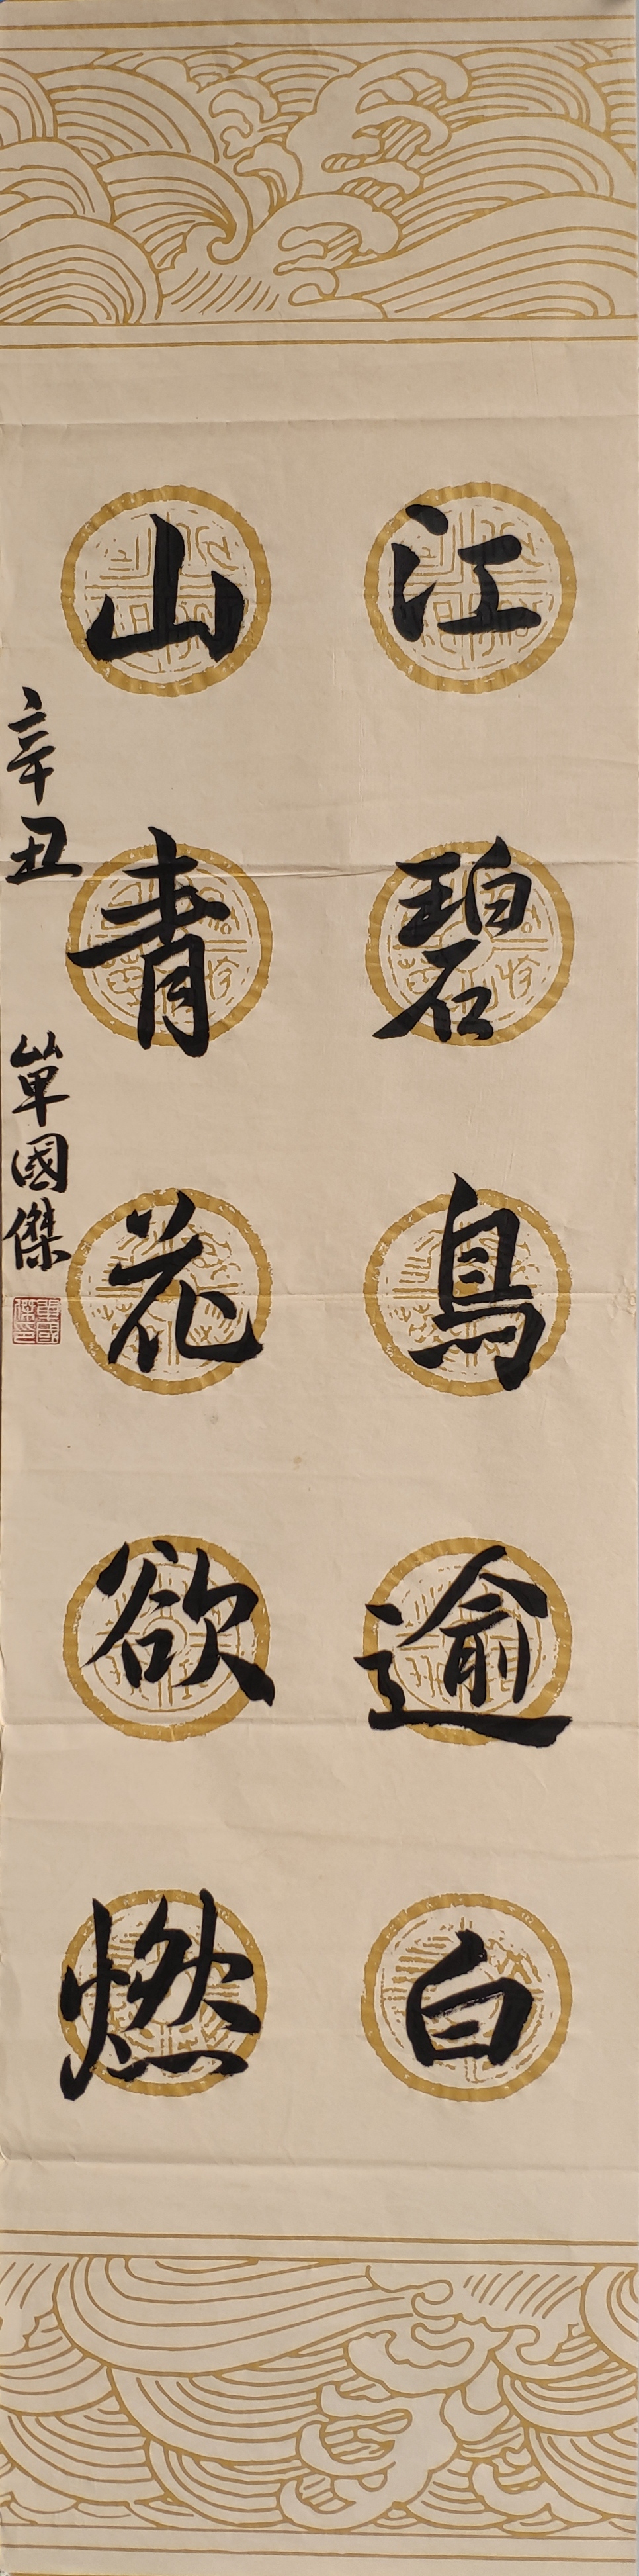 江碧鳥逾白
山青花欲燃
辛丑
單國傑